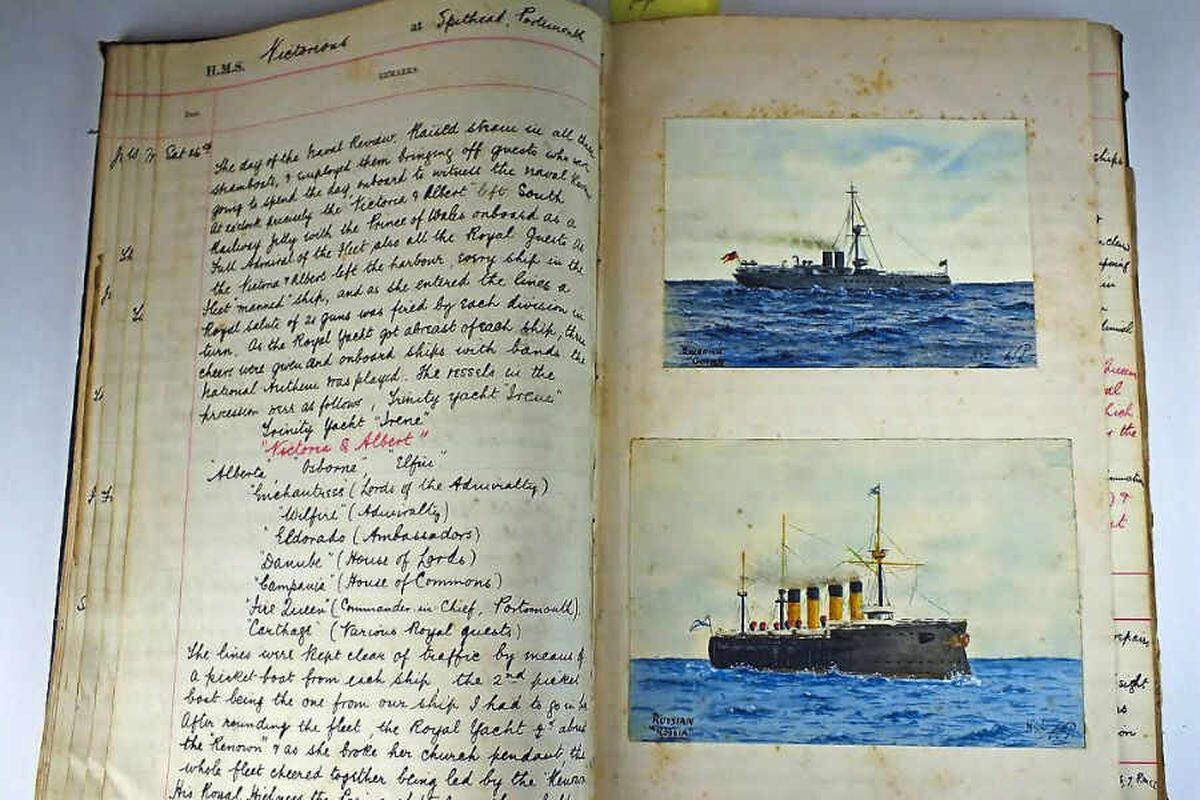 H.M.S. Victorious at Spithead, Portsmouth
REMARKS
Sat 26th
The day of the Naval Review, Raised steam in all
steamboats, & employed them bringing off guests who were
going to spend the day onboard to witness the naval
At o'clock precisely the "Victoria & Albert" left South
Railway Jetty with the Prince of Wales onboard as a
Full Admiral of the Fleet also all the Royal Guests As
the Victoria & Albert left the harbour, every ship in the
Fleet "manned" ship, and as she entered the lines a
Royal salute of 21 guns was fired by each division in
turn. As the Royal Yacht got abreast of each ship, three
cheers were given and onboard ships with bands the
National Anthem was played. The vessels in the
procession were as follows, Trinity yacht "Irene"
Trinity Yacht "Irene"
"Victoria & Albert"
"Alberta" "Osborne" "Elfin"
"Enchantress" (Lords of the Admiralty)
"Wilfire" (Admiralty)
"Eldorado" (Ambassadors)
"Danube" (House of Lords)
"Campania" (House of Commons)
"Fire Queen" (Commander in Chief, Portsmouth)
"Carthage" (Various Royal guests)
The lines were kept clear of traffic by means of
a picket boat from each ship the 2nd picket
boat being the one from our ship I had to go in
After rounding the fleet, the Royal Yacht abreast
the "Renown" & as she broke her church pendant the
whole fleet cheered together being led by the "Renown"
His Royal Highness the
RUSSIAN
"ROSSIA"
ships
Queen
al
which
the
sight